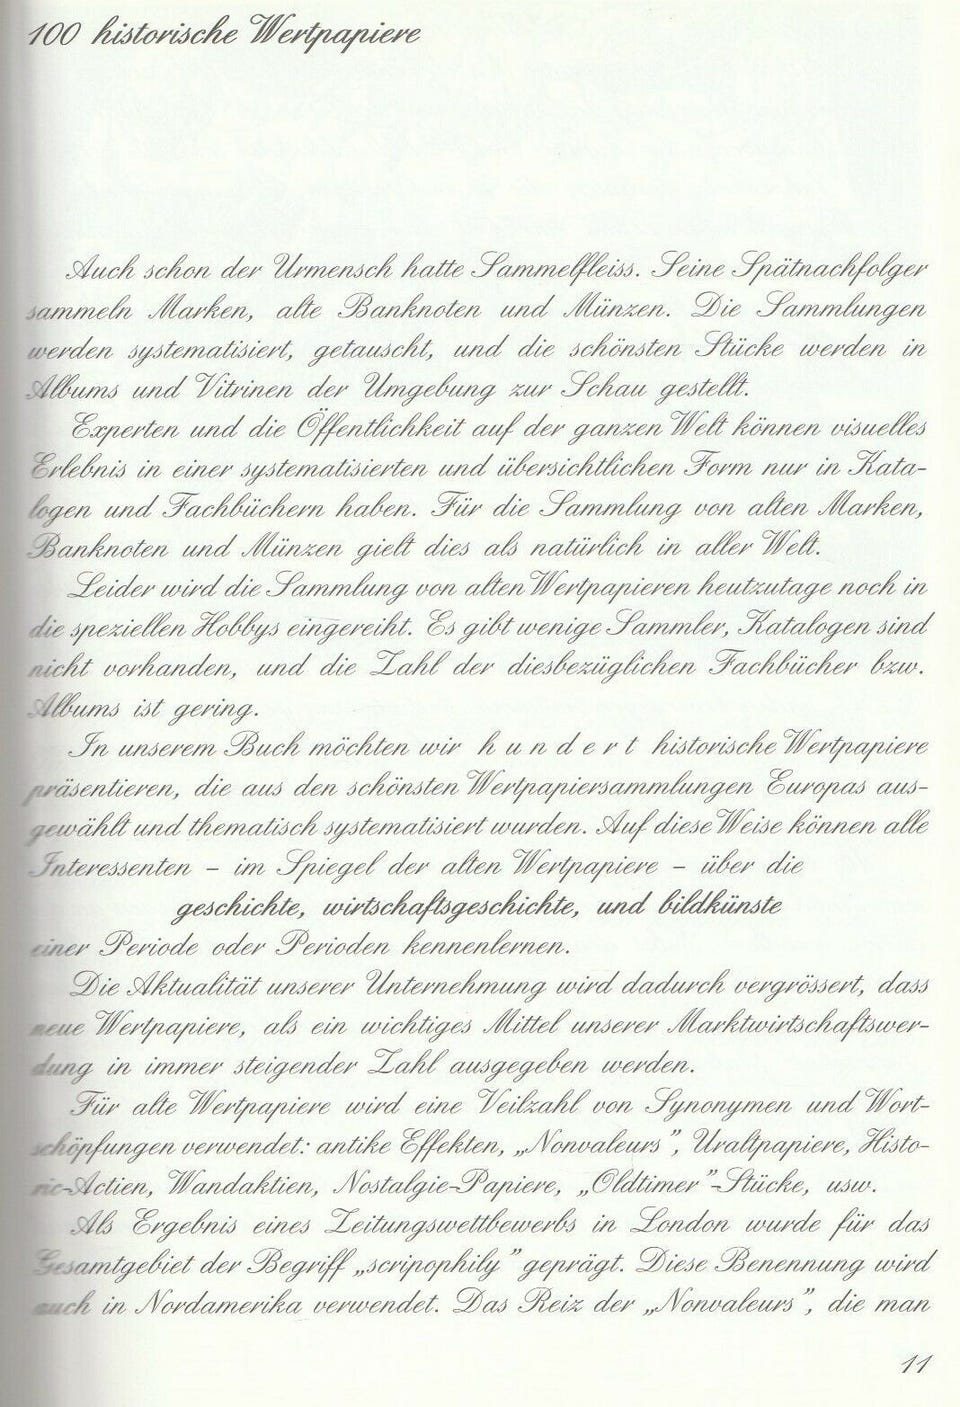 100 historische Wertpapiere
Auch schon der Urmensch hatte Sammelfleiss. Seine Spätnachfolger
sammeln Marken, alte Banknoten und Münzen. Die Sammlungen
werden systematisiert, getauscht, und die schönsten Stücke werden in
Albums und Vitrinen der Umgebung zur Schau gestellt.
Experten und die Öffentlichkeit auf der ganzen Welt können visuelles
Erlebnis in einer systematisierten und übersichtlichen Form nur in Kata-
logen und Fachbüchern haben. Für die Sammlung von alten Marken,
Banknoten und Münzen gielt dies als natürlich in aller Welt.
Leider wird die Sammlung von alten Wertpapieren heutzutage noch in
die speziellen Hobbys eingereiht. Es gibt wenige Sammler, Katalogen sind
nicht vorhanden, und die Zahl der diesbezüglichen Fachbücher bzw.
Albums ist gering.
In unserem Buch möchten wir h u n d e r t historische Wertpapiere
präsentieren, die aus den schönsten Wertpapiersammlungen Europas aus-
gewählt und thematisch systematisiert wurden. Auf diese Weise können alle
Interessenten – im Spiegel der alten Wertpapiere – über die
geschichte, wirtschaftsgeschichte, und bildkünste
einer Periode oder Perioden kennenlernen.
Die Aktualität unserer Unternehmung wird dadurch vergrössert, dass
neue Wertpapiere, als ein wichtiges Mittel unserer Marktwirtschaftswer-
dung in immer steigender Zahl ausgegeben werden.
Für alte Wertpapiere wird eine Veilzahl von Synonymen und Wort-
schöpfungen verwendet: antike Effekten, „Nonvaleurs", Uraltpapiere, Histo-
ric-Actien, Wandaktien, Nostalgie-Papiere, „Oldtimer"-Stücke, usw.
Als Ergebnis eines Zeitungswettbewerbs in London wurde für das
Gesamtgebiet der Begriff „scripophily" geprägt. Diese Benennung wird
auch in Nordamerika verwendet. Das Reiz der „Nonvaleurs", die man
11